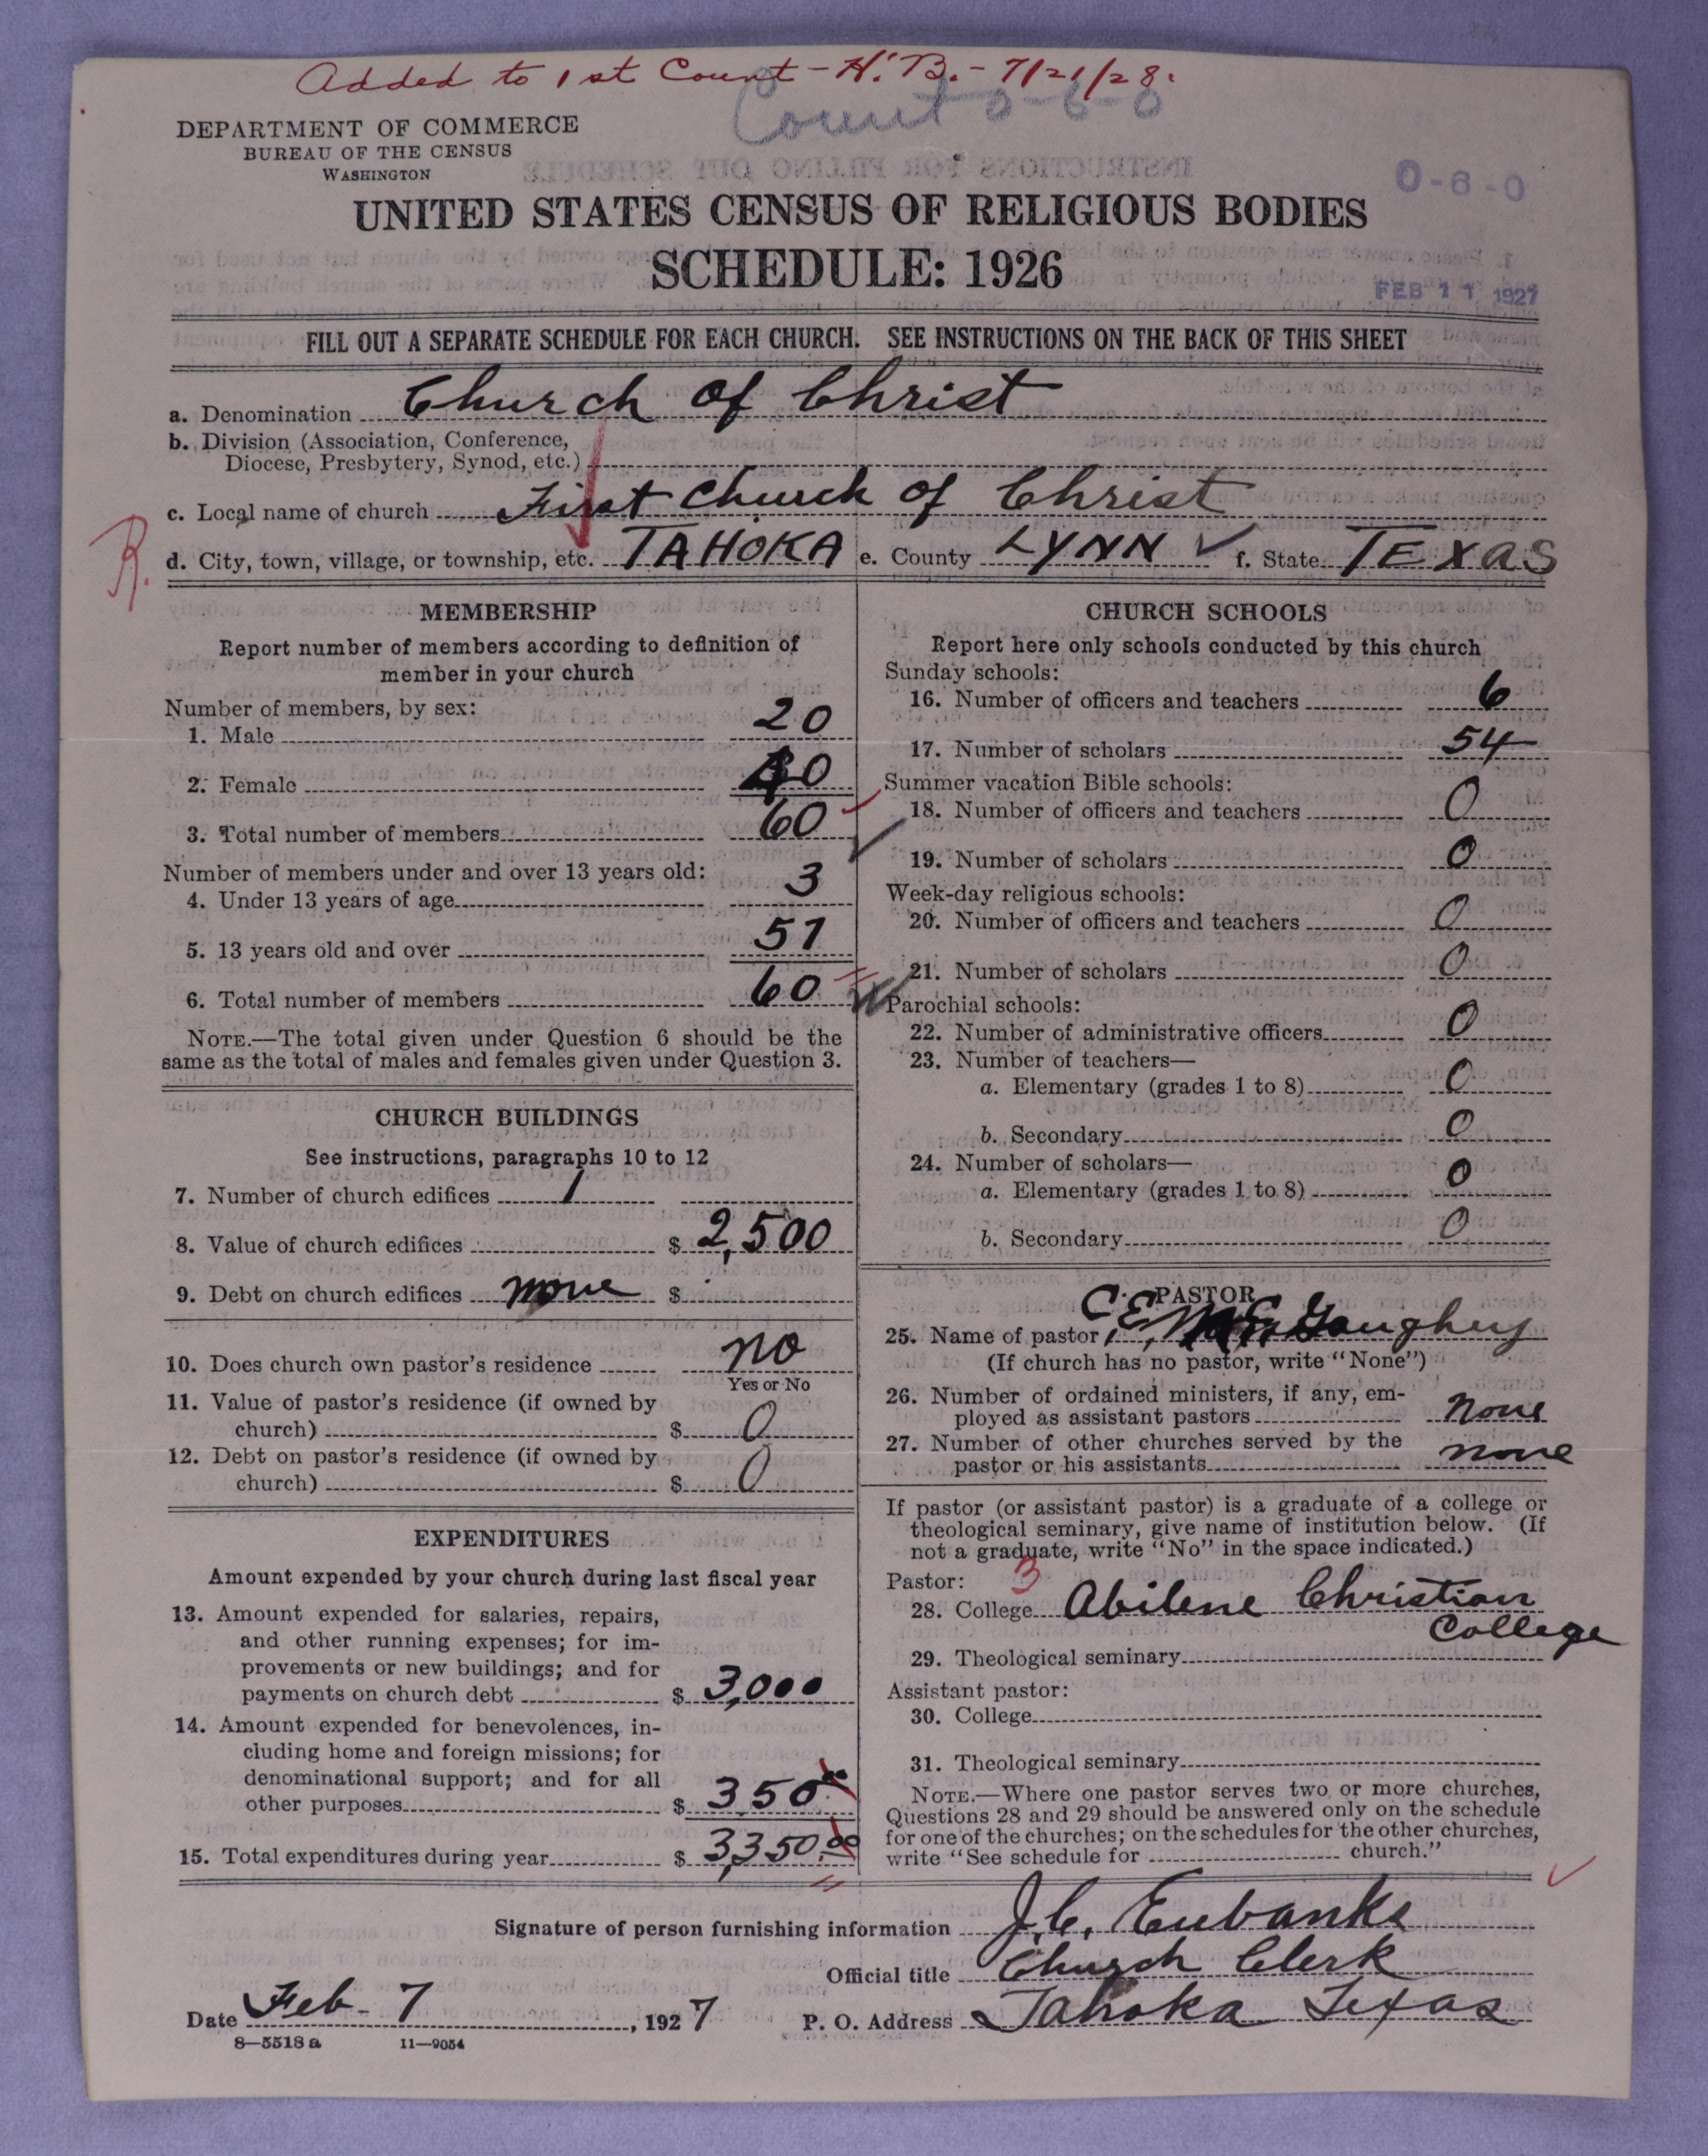 Added to 1st Count - H.B. - 7/21/28.
Count 0-6-0
DEPARTMENT OF COMMERCE
BUREAU OF THE CENSUS
WASHINGTON
0-6-0
UNITED STATES CENSUS OF RELIGIOUS BODIES
SCHEDULE: 1926
FEB 11 1927
FILL OUT A SEPARATE SCHEDULE FOR EACH CHURCH. SEE INSTRUCTIONS ON THE BACK OF THIS SHEET
a. Denomination Church of Christ
b. Division (Association, Conference,
Diocese, Presbytery, Synod, etc.)
c. Local name of church First Church of Christ
R.
d. City, town, village, or township, etc. TAHOKA e. County LYNN ✓ f. State TEXAS
MEMBERSHIP
Report number of members according to definition of
member in your church
Number of members, by sex:
1. Male 20
2. Female 40
3. Total number of members 60
Number of members under and over 13 years old:
4. Under 13 years of age 3
5. 13 years old and over 57
6. Total number of members 60
NOTE.—The total given under Question 6 should be the
same as the total of males and females given under Question 3.
CHURCH BUILDINGS
See instructions, paragraphs 10 to 12
7. Number of church edifices 1
8. Value of church edifices $ 2,500
9. Debt on church edifices none $
10. Does church own pastor's residence no
Yes or No
11. Value of pastor's residence (if owned by
church) $ 0
12. Debt on pastor's residence (if owned by
church) $ 0
EXPENDITURES
Amount expended by your church during last fiscal year
13. Amount expended for salaries, repairs,
and other running expenses; for im-
provements or new buildings; and for
payments on church debt $ 3,000
14. Amount expended for benevolences, in-
cluding home and foreign missions; for
denominational support; and for all
other purposes $ 350.00
15. Total expenditures during year $ 3,350.00
CHURCH SCHOOLS
Report here only schools conducted by this church
Sunday schools:
16. Number of officers and teachers 6
17. Number of scholars 54
Summer vacation Bible schools:
18. Number of officers and teachers 0
19. Number of scholars 0
Week-day religious schools:
20. Number of officers and teachers 0
21. Number of scholars 0
Parochial schools:
22. Number of administrative officers 0
23. Number of teachers—
a. Elementary (grades 1 to 8) 0
b. Secondary 0
24. Number of scholars—
a. Elementary (grades 1 to 8) 0
b. Secondary 0
PASTOR
25. Name of pastor C. E. Gaughey
(If church has no pastor, write "None")
26. Number of ordained ministers, if any, em-
ployed as assistant pastors none
27. Number of other churches served by the
pastor or his assistants none
If pastor (or assistant pastor) is a graduate of a college or
theological seminary, give name of institution below. (If
not a graduate, write "No" in the space indicated.)
Pastor: 3
28. College Abilene Christian
College
29. Theological seminary
Assistant pastor:
30. College
31. Theological seminary
NOTE.—Where one pastor serves two or more churches,
Questions 28 and 29 should be answered only on the schedule
for one of the churches; on the schedules for the other churches,
write "See schedule for church."
Signature of person furnishing information J. C. Eubanks
Official title Church Clerk
Date Feb- 7, 1927 P. O. Address Tahoka Texas
8—5518 a 11—9054